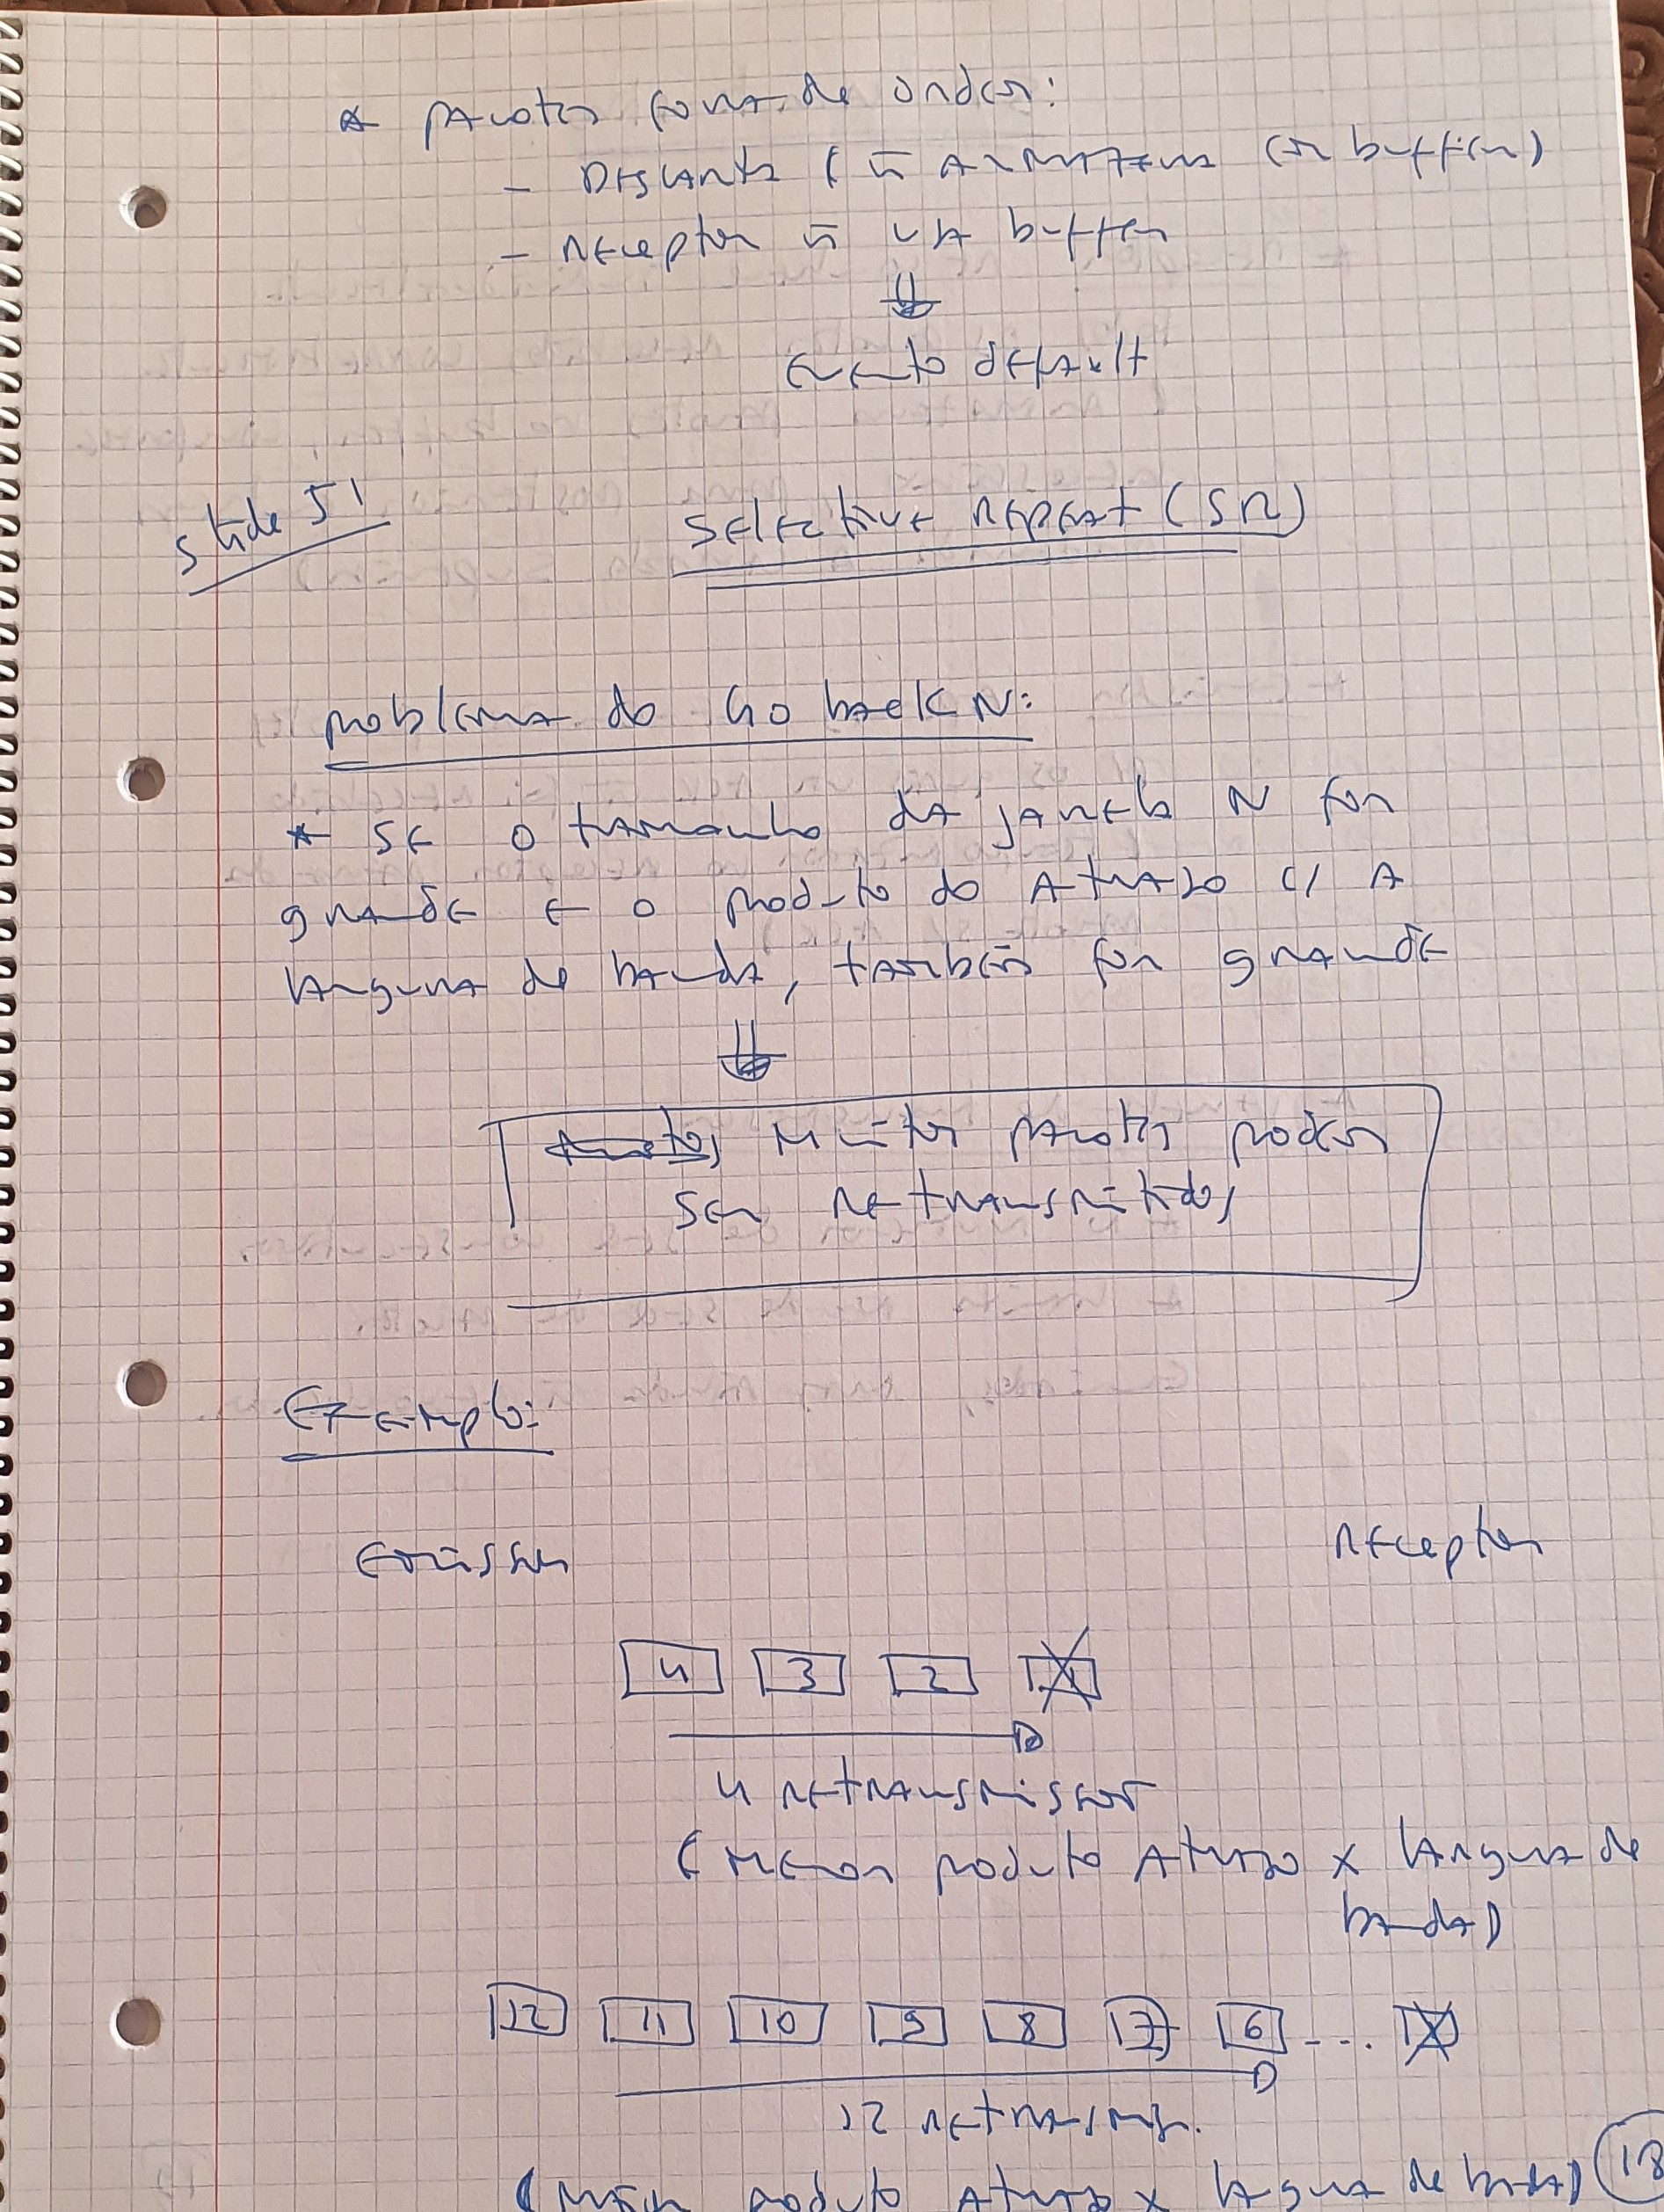 * pacotes fora de ordem:
- Descarta (ñ armazena em buffer)
- receptor ñ usa buffer
⇓
evento default
slide 51
Selective Repeat (SR)
problema do Go back N:
* se o tamanho da janela N for
grande e o produto do atraso c/ a
largura de banda, também for grande
⇓
Muitos pacotes podem
ser retransmitidos
Exemplo:
Emissor
receptor
4 3 2 1
4 retransmissões
(Menor produto atraso x largura de
banda)
12 11 10 9 8 7 6 ... 1
12 retransmis.
(Maior produto atraso x largura de banda)
18